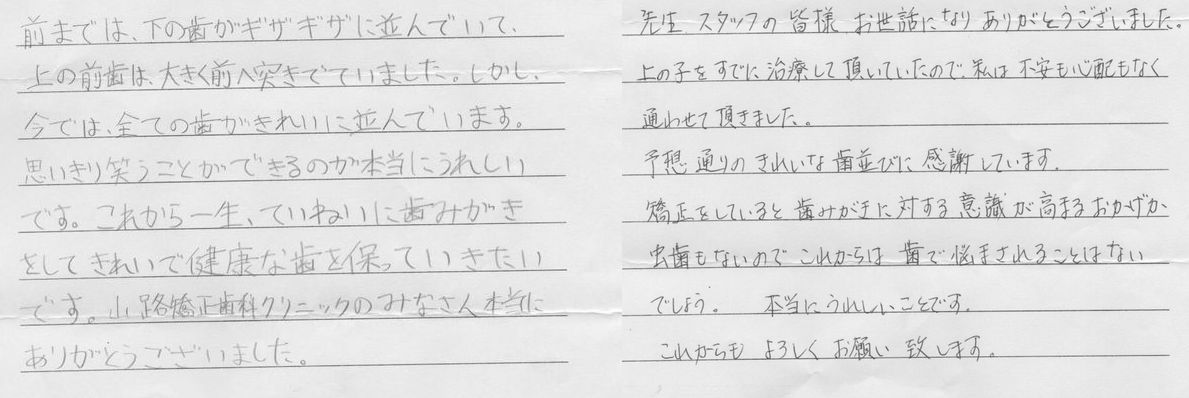 前までは、下の歯がギザギザに並んでいて、
上の前歯は、大きく前へ突きでていました。しかし、
今では、全ての歯がきれいに並んでいます。
思いきり笑うことができるのが本当にうれしい
です。これから一生、ていねいに歯みがき
をしてきれいで健康な歯を保っていきたい
です。山路矯正歯科クリニックのみなさん本当に
ありがとうございました。
先生、スタッフの皆様 お世話になり ありがとうございました。
上の子をすでに治療して頂いていたので、私は不安も心配もなく
通わせて頂きました。
予想通りの きれいな歯並びに感謝しています。
矯正をしていると歯みがきに対する意識が高まるおかげか
虫歯もないので これからは 歯で悩まされることはない
でしょう。 本当にうれしいことです。
これからも よろしく お願い致します。